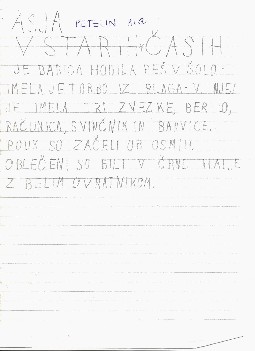 ASJA PETELIN 3.a
V STARIH ČASIH
JE BABICA HODILA PEŠ V ŠOLO.
IMELA JE TORBO IZ BLAGA. V NJEJ
JE IMELA TRI ZVEZKE, BERILO,
RAČUNICA, SVINČNIK IN BARVICE.
POUK SO ZAČELI OB OSMIH.
OBLEČENI SO BILI V ČRNE HALJE
Z BELIM OVRATNIKOM.